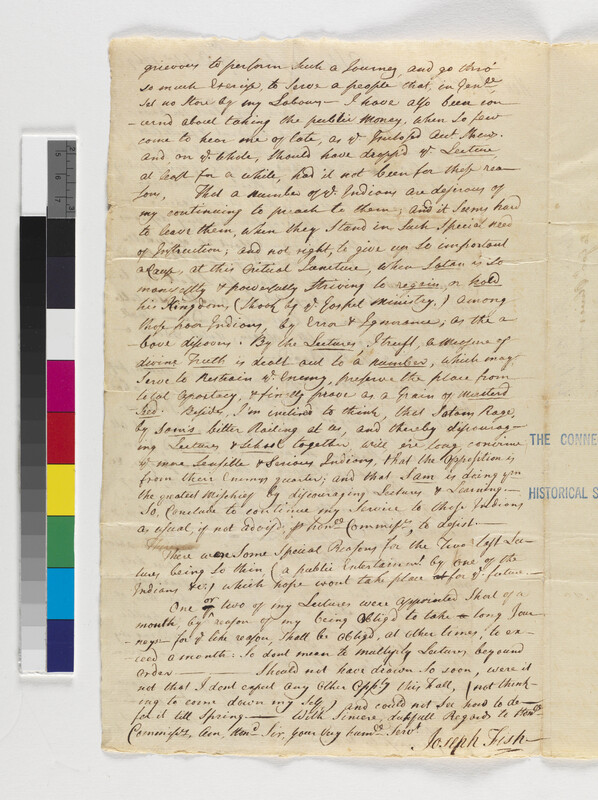 grievous to perform such a Journey, and go thro'
so much Exercise, to serve a people that, in Genl,
set no Store by my Labours — I have also been con-
-cernd about taking the publick Money, when so few
come to hear me of late, as ye Inclos'd Acct Shew.
And on ye Whole, Should have dropp'd ye Lecture,
at least for a while, had it not been for these rea-
sons, That a number of ye Indians are desirous of
my continuing to preach to them; and it Seems hard
to leave them, when they Stand in Such Special need
of Instruction; and not right, to give up So important
a Cause, at this Critical Juncture, when Satan is So
manifestly & powerfully Striving to regain, or hold
his Kingdom, (Shook by ye Gospel Ministry,) among
these poor Indians, by Error & Ignorance; as the a-
bove discovers. By the Lectures, I trust, a Measure of
divine Truth is dealt out to a number, which may
Serve to Restrain ye Enemy, preserve the place from
total Apostacy, & finely prove as a Grain of Musterd
Seed. Besides, I'm inclind to think, that Satans Rage,
by Sam's bitter Railing at us, and thereby discourag-
ing Lectures & School together, will ere long convince
ye more Sensible & Serious Indians, that the Opposition is
from their Enemys quarter; and that Sam is doing ym
the greatest Mischief by discouraging Lectures & Learning. —
So, Conclude to continue my Service to these Indians
as usual, if not advisd, pr honde Commissrs, to desist. —
There were Some Special Reasons for the Two last Lec-
tures being so thin (a public Entertainmt by One of the
Indians &c.) which hope wont take place for ye future. —
One or two of my Lectures were appointed Short of a
month, by reason of my being Obligd to take long Jour-
neys — for ye like reason, Shall be Obligd, at other times, to ex-
ceed a month: So dont mean to multiply Lectures beyound
order ——— Should not have drawn so soon, were it
not that I dont expect any Other Oppty this Fall, (not think-
ing to come down my Self,) and could not See how to de-
fer it till Spring. — With Sincere, dutyfull Regards to
Commissrs, am, Hond Sir, your Very humle Servt
Joseph Fish
THE CONNE
HISTORICAL S